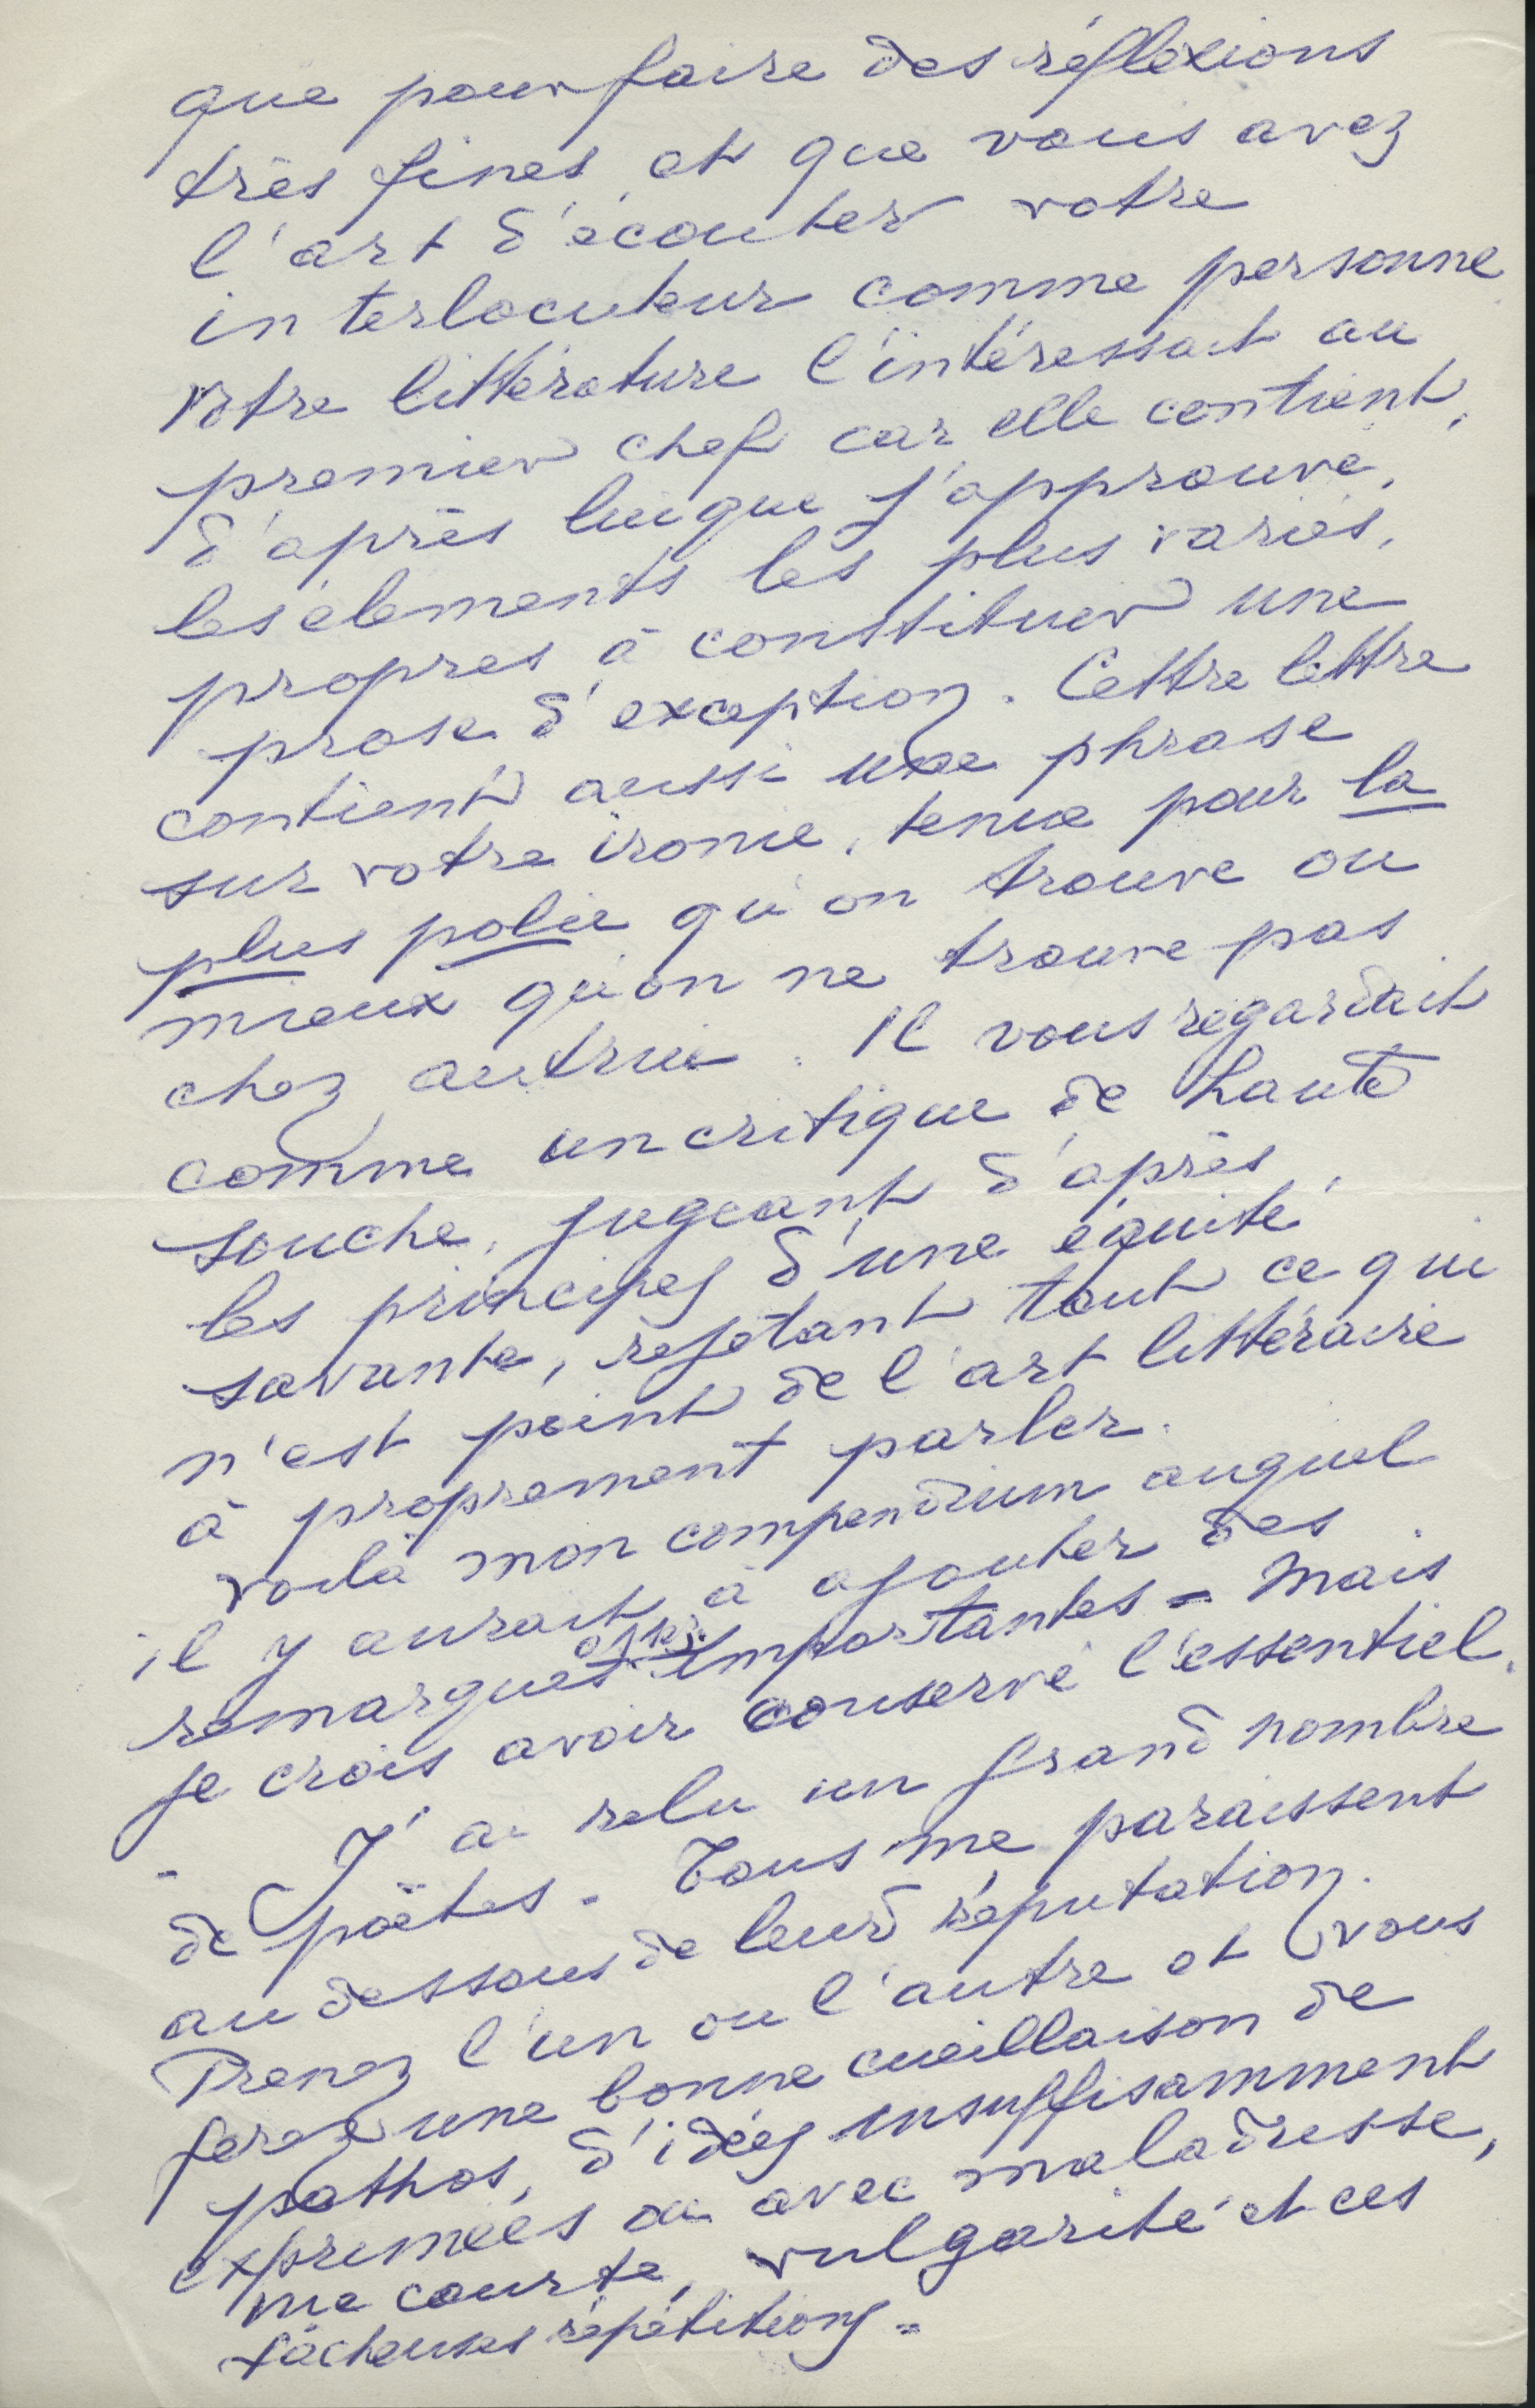 que pour faire des réflexions
très fines et que vous avez
l'art d'écouter votre
interlocuteur comme personne
Votre littérature l'intéressait au
premier chef car elle contient,
d'après lui que j'approuve,
les éléments les plus variés,
propres à constituer une
prose d'exception. Cettre lettre
contient aussi une phrase
sur votre ironie, tenue pour la
plus polie qu'on trouve ou
mieux qu'on ne trouve pas
chez autrui. Il vous regardait
comme un critique de haute
souche, jugeant d'après
les principes d'une équité
savante, rejetant tout ce qui
n'est point de l'art littéraire
à proprement parler.
Voilà mon compendium auquel
il y aurait à ajouter des
remarques assez importantes - Mais
je crois avoir conservé l'essentiel.
- J'ai relu un grand nombre
de poëtes. Tous me paraissent
au dessous de leur réputation.
Prenez l'un ou l'autre et vous
ferez une bonne cueillaison de
pathos, d'idées insuffisamment
exprimées ou avec maladresse,
vue courte, vulgarité et ces
fâcheuses répétitions =